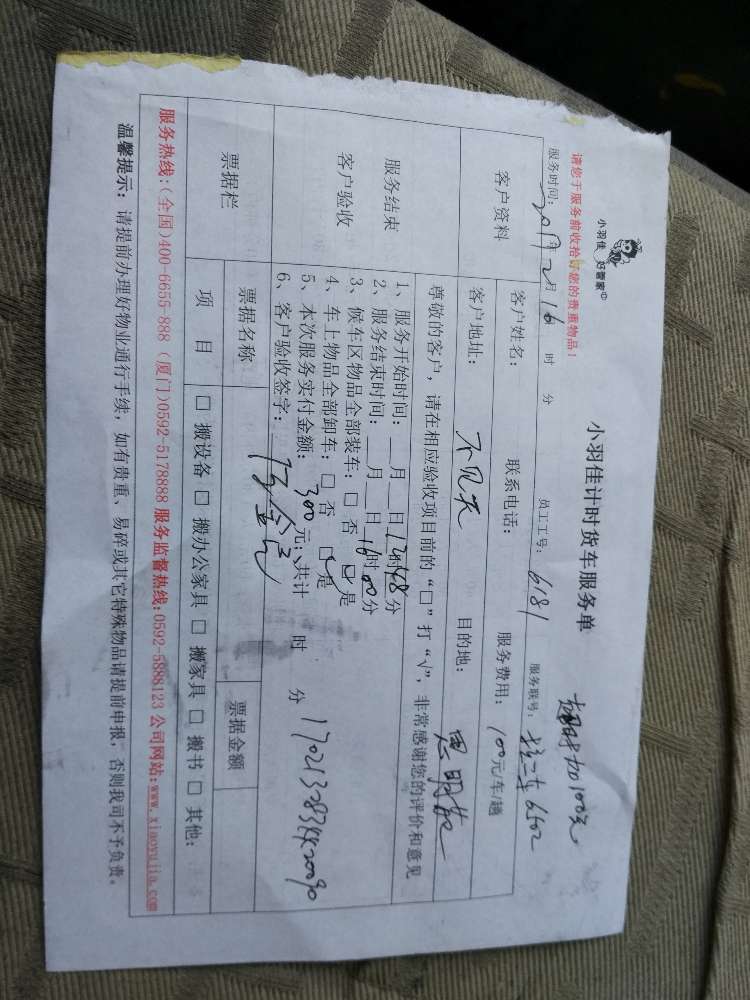 小羽佳 好管家
小羽佳计时货车服务单
超时加100元
请您于服务前收拾好您的贵重物品!
服务时间: 2017 2月16 时 分 员工工号: 6181 服务联号: 6502
客户资料 客户姓名: 联系电话: 服务费用: 100元/车/趟
客户地址: 不见天 目的地:
服务结束
客户验收
尊敬的客户,请在相应验收项目前的“□”打“√”,非常感谢您的评价和意见
1、服务开始时间:__月__日 时48分
2、服务结束时间:__月__日16时00分
3、候车区物品全部装车:□ 否 是
4、车上物品全部卸车:□ 否 是
5、本次服务实付金额:300元;共计 时 分
6、客户验收签字:
票据栏 票据名称 票据金额
项 目 □ 搬设备 □ 搬办公家具 □ 搬家具 □ 搬书 □ 其他:
服务热线:(全国)400-6655-888 (厦门)0592-5178888 服务监督热线:0592-5888123 公司网站:www.xiaoyujia.com
温馨提示:请提前办理好物业通行手续,如有贵重、易碎或其它特殊物品请提前申报,否则我司不予负责。